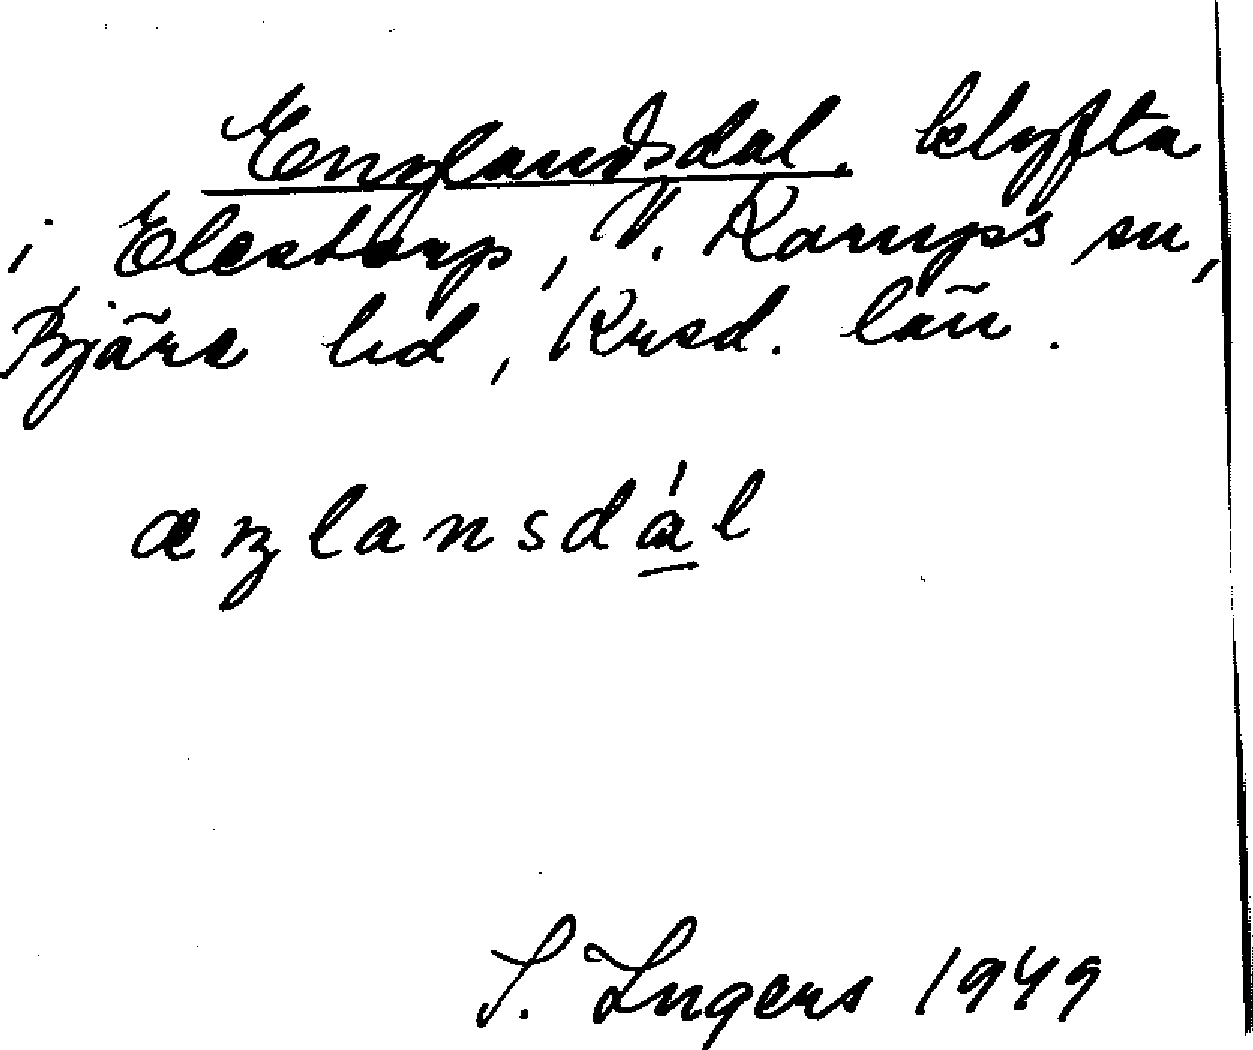 Englandsdal. klyfta
i Elestorp, V. Karups sn,
Bjäre hd, Krsd. län.
æŋlansdál
S. Ingers 1949